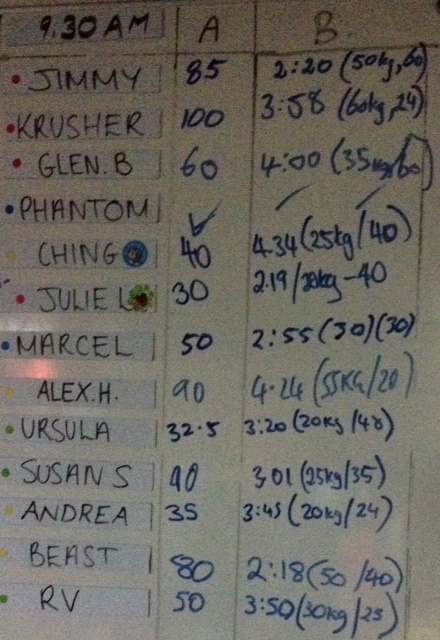 9.30 AM A B
JIMMY 85 2:20 (50kg, 60)
KRUSHER 100 3:58 (60kg, 24)
GLEN. B 60 4:00 (35kg/60)
PHANTOM
CHING 40 4.34 (25kg/40)
JULIE L 30 2.19/20kg-40
MARCEL 50 2:55 (30) (30)
ALEX.H. 90 4.24 (55KG/20)
URSULA 32.5 3:20 (20kg/48)
SUSAN S 3.01 (25kg/35)
ANDREA 35 3:45 (20kg/24)
BEAST 80 2:18 (50/40)
RV 50 3:50 (30kg/25)